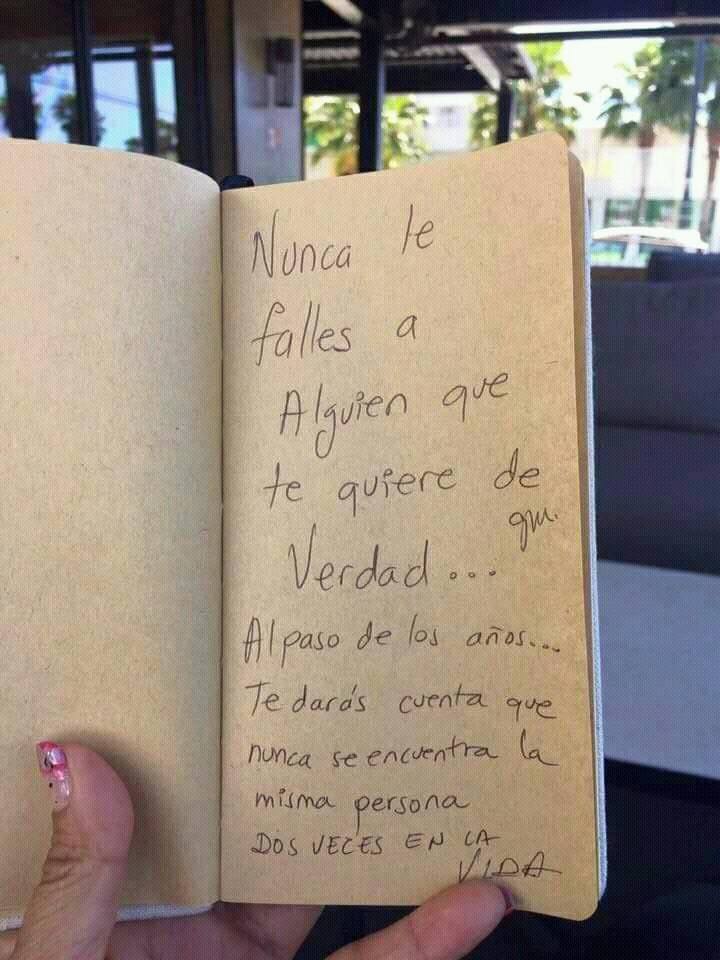 Nunca le
falles a
Alguien que
te quiere de
Verdad...
gm.
Al paso de los años...
Te darás cuenta que
nunca se encuentra la
misma persona
DOS VECES EN LA
VIDA